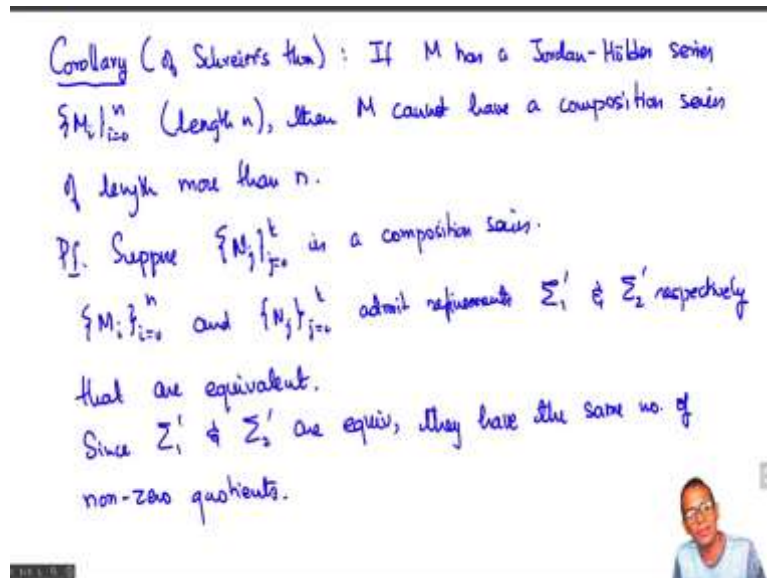 Corollary (of Schreier's thm) : If M has a Jordan-Hölder series
{M_i}_{i=0}^n (length n), then M cannot have a composition series
of length more than n.
Pf. Suppose {N_j}_{j=0}^t is a composition series.
{M_i}_{i=0}^n and {N_j}_{j=0}^t admit refinements Σ_1' & Σ_2' respectively
that are equivalent.
Since Σ_1' & Σ_2' are equiv, they have the same no. of
non-zero quotients.